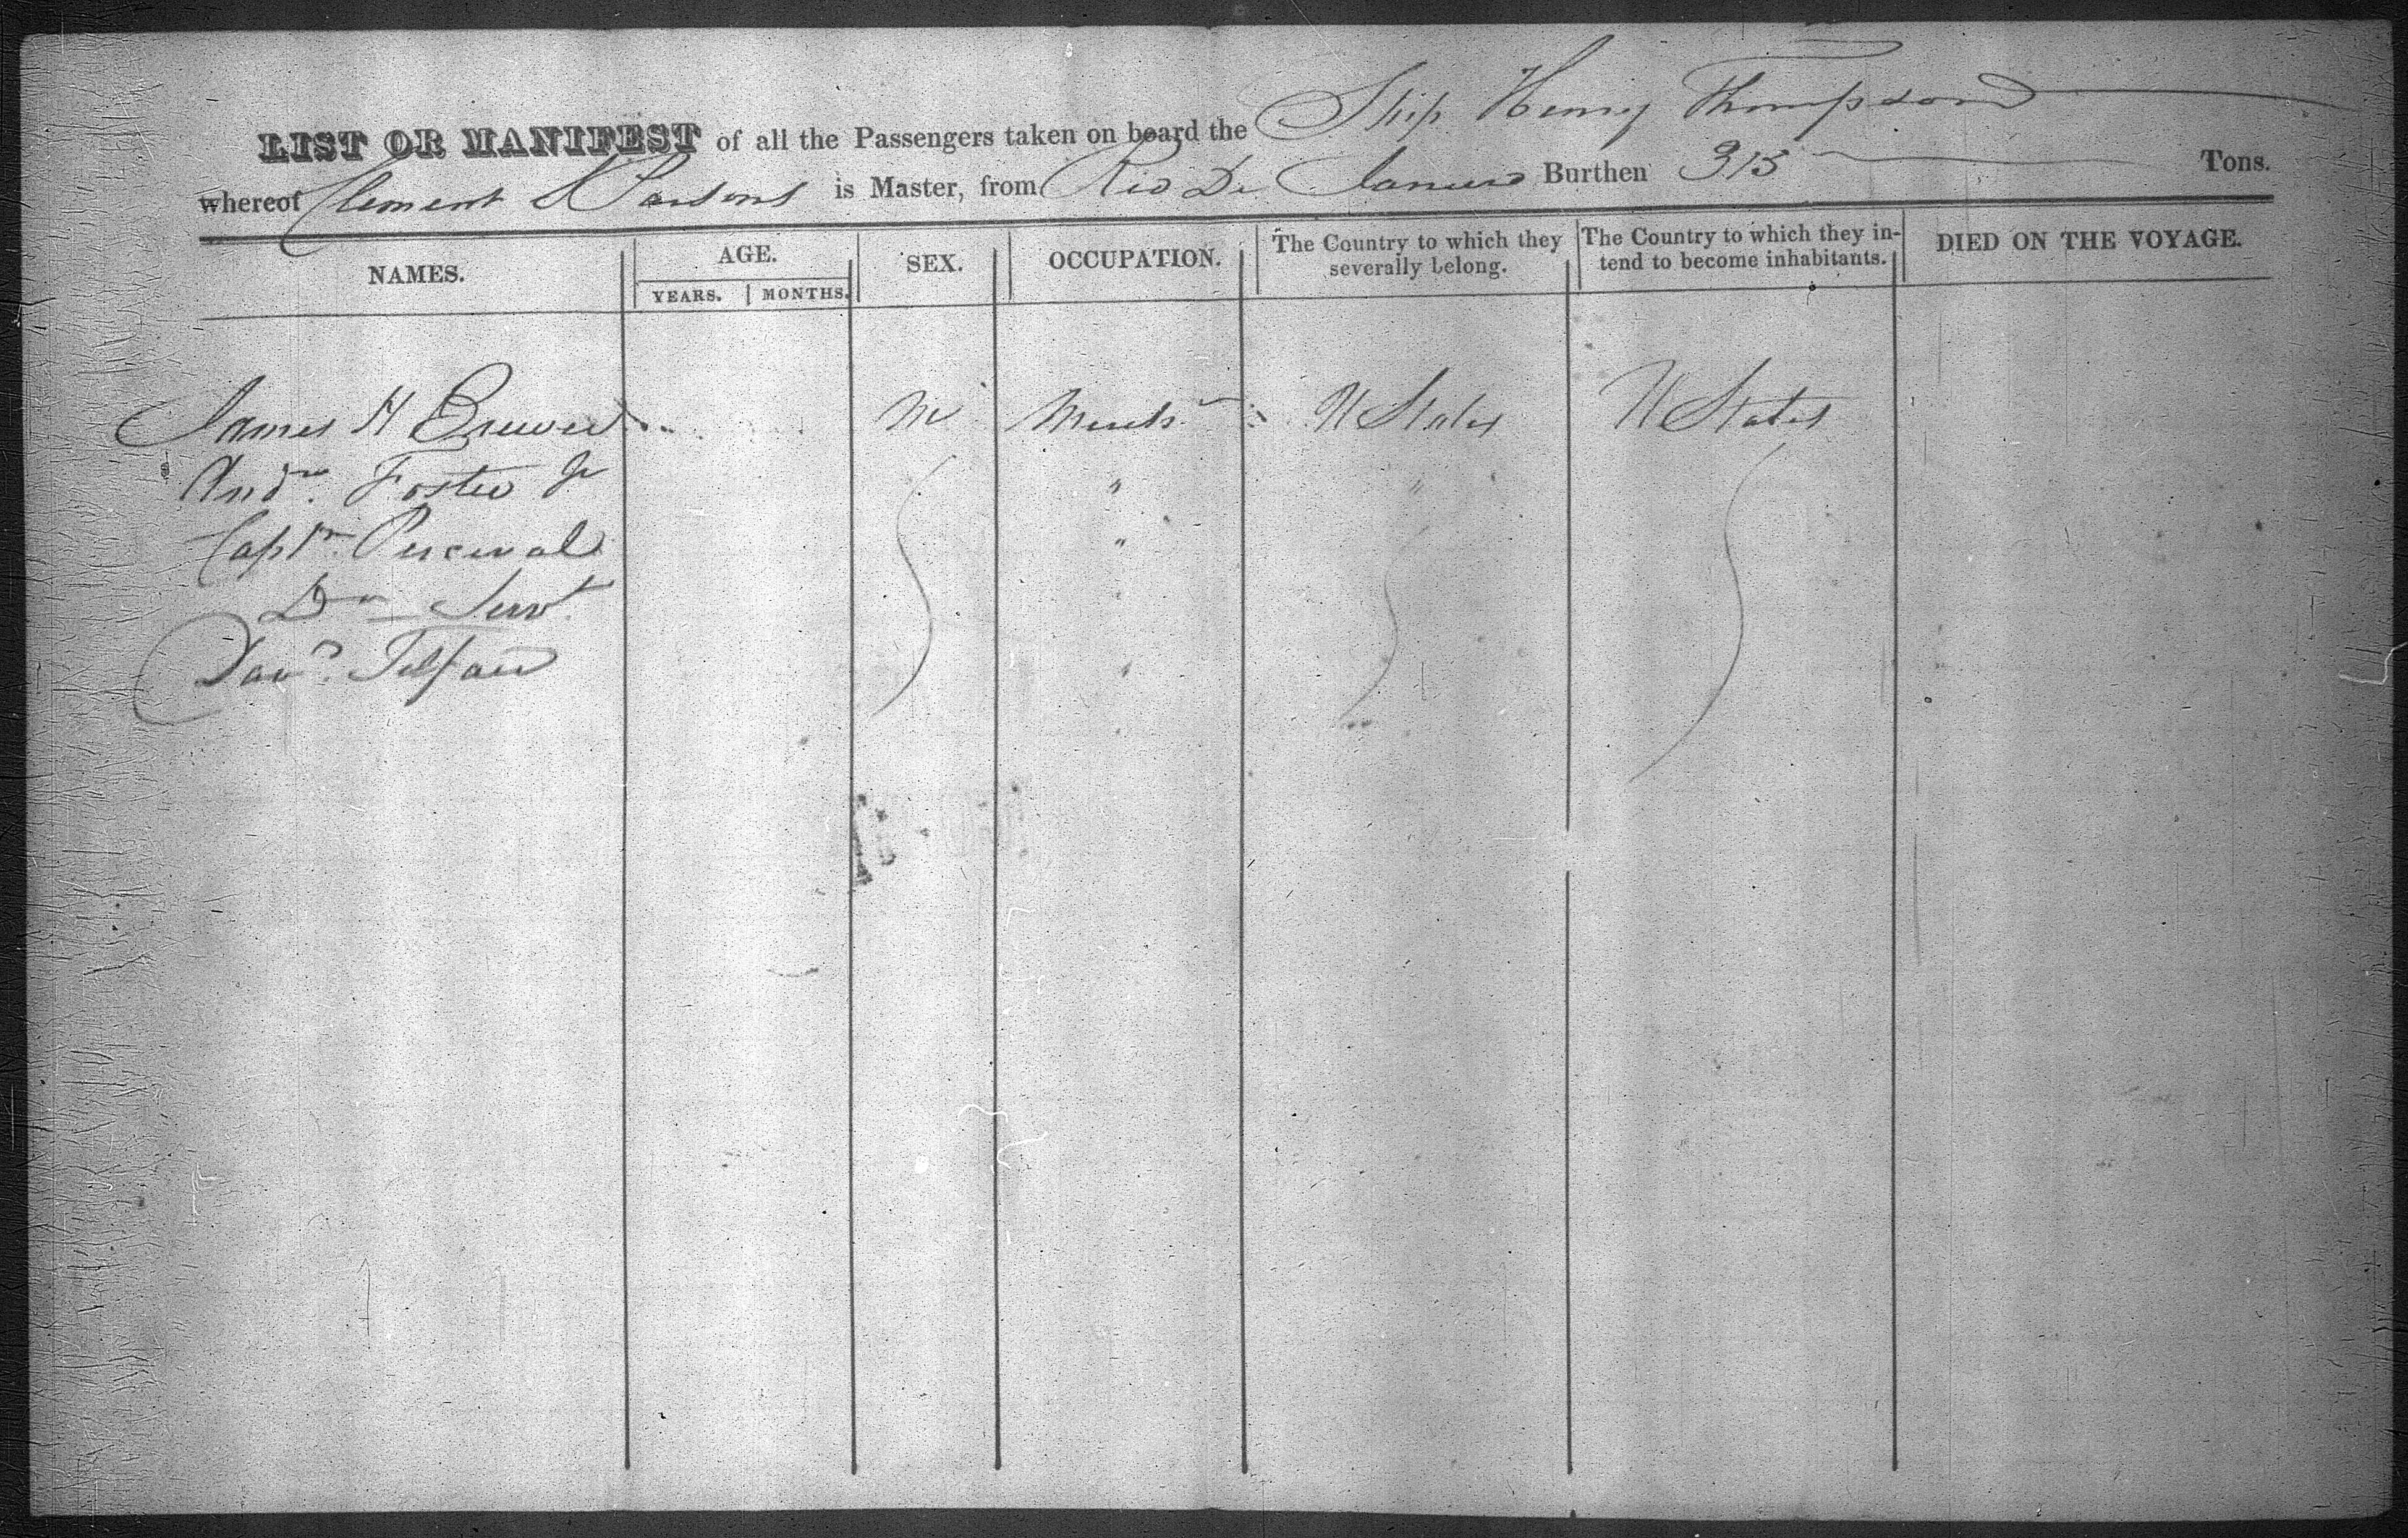 LIST OR MANIFEST of all the Passengers taken on board the Ship Henry Thompson
whereof Clement S Parsons is Master, from Rio De Janeiro Burthen 315 Tons.
NAMES. AGE. SEX. OCCUPATION. The Country to which they severally belong. The Country to which they intend to become inhabitants. DIED ON THE VOYAGE.
YEARS. MONTHS.
James H Brewer M Merch U States U States
Andw. Foster Jr " "
Captn. Percival "
Do Servt
Davd. Telfair "